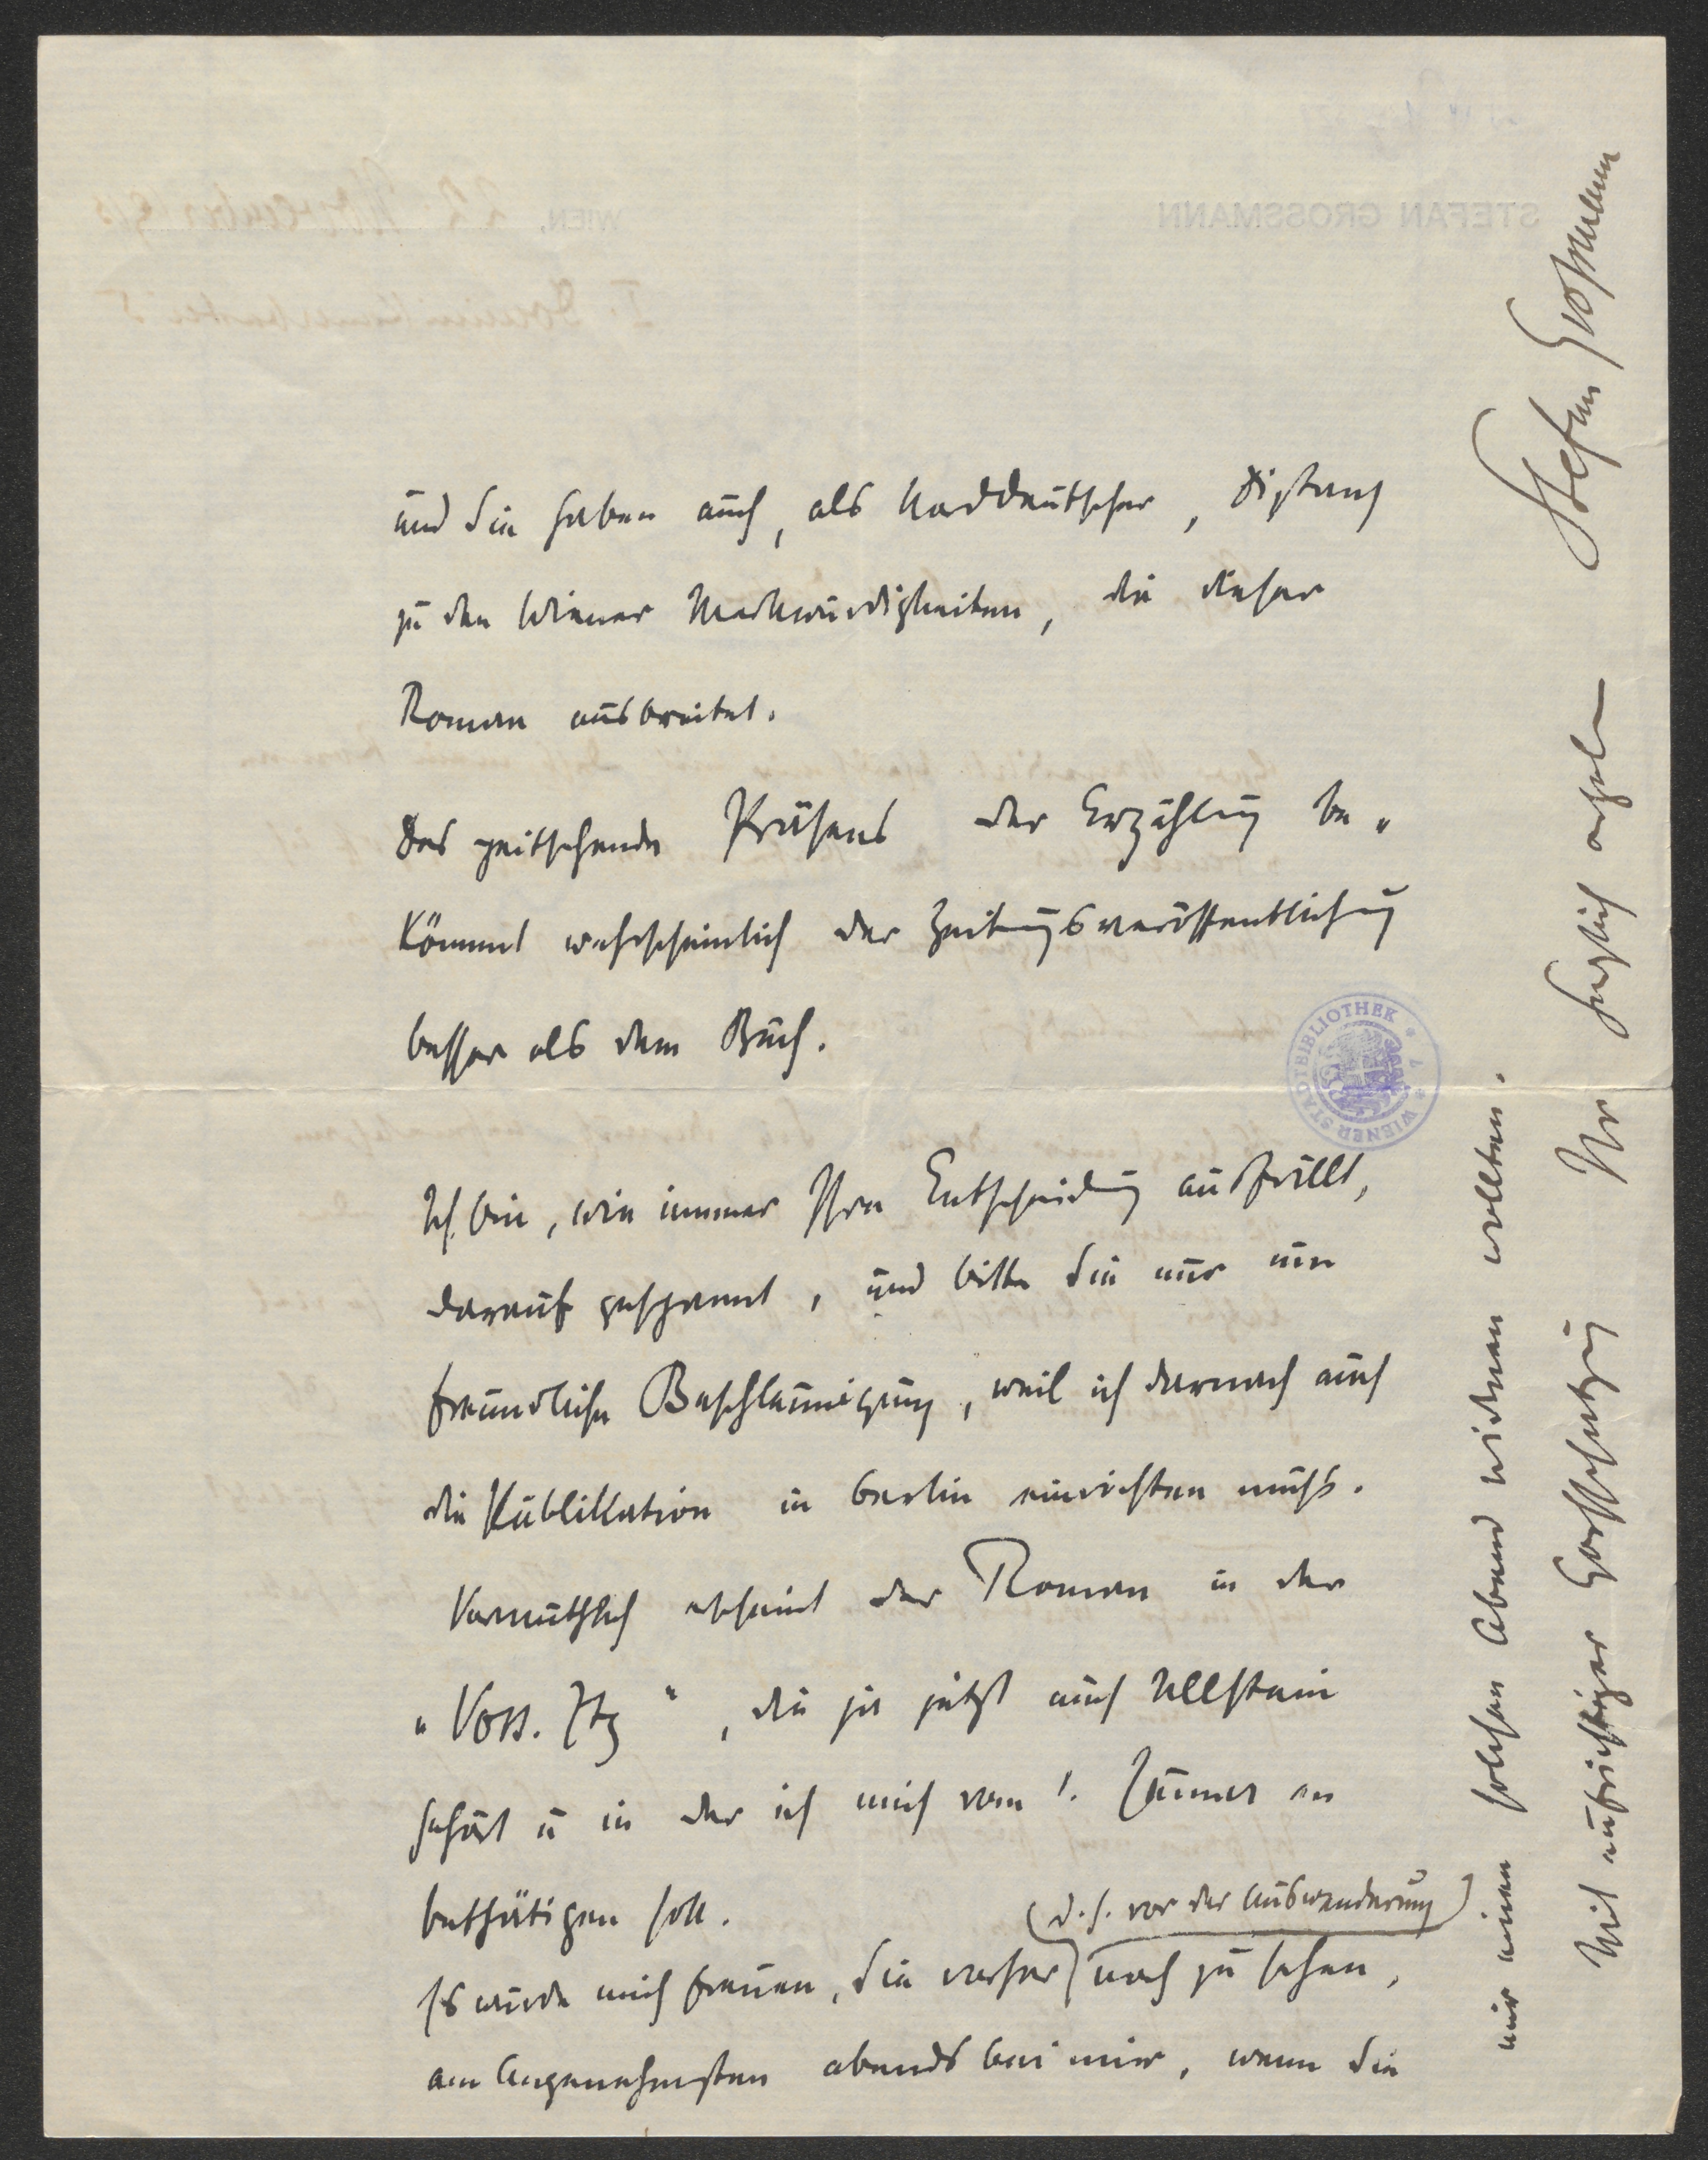 und Sie haben auch, als Norddeutscher, Distanz
zu den Wiener Merkwürdigkeiten, die dieser
Roman ausbreitet.
Das peitschende Präsens der Erzählung be-
kömmt wahrscheinlich der Zeitungsveröffentlichung
besser als dem Buch.
Ich bin, wie immer Ihre Entscheidung ausfällt,
darauf gespannt, und bitte Sie nur um
freundliche Beschleunigung, weil ich darnach auch
die Publikation in Berlin einrichten muss.
Vermuthlich erscheint der Roman in der
„Voss. Ztg“, die ja jetzt auch Ullstein
gehört u in der ich mich vom 1. Jänner an
bethätigen soll.
(d. h. vor der Auswanderung)
Es würde mich freuen, Sie vorher noch zu sehen,
am Angenehmsten abends bei mir, wenn Sie
mir einen solchen Abend widmen wollten.
Mit aufrichtiger Hochschätzung Ihr herzlich ergeb.
Stefan Großmann
WIENER STADTBIBLIOTHEK
STEFAN GROSSMANN
WIEN,